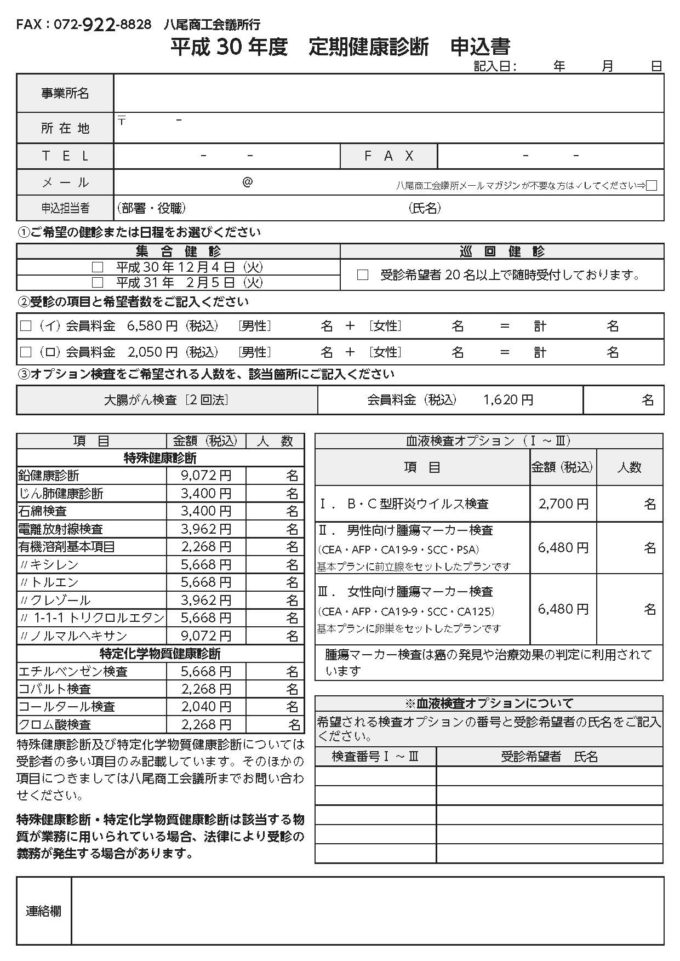 FAX：072-922-8828　八尾商工会議所行
平成 30 年度　定期健康診断　申込書
記入日：　　年　　月　　日
事業所名
所 在 地　〒　　－
Ｔ Ｅ Ｌ　　－　　－　　Ｆ Ａ Ｘ　　－　　－
メ ー ル　　@　　八尾商工会議所メールマガジンが不要な方は✓してください⇒□
申込担当者　（部署・役職）　　（氏名）
①ご希望の健診または日程をお選びください
集 合 健 診　　巡 回 健 診
□　平成 30 年 12 月 4 日（火）
□　平成 31 年　2 月 5 日（火）
□　受診希望者 20 名以上で随時受付しております。
②受診の項目と希望者数をご記入ください
□（イ）会員料金　6,580 円（税込）　［男性］　　名　＋　［女性］　　名　＝　計　　名
□（ロ）会員料金　2,050 円（税込）　［男性］　　名　＋　［女性］　　名　＝　計　　名
③オプション検査をご希望される人数を、該当箇所にご記入ください
大腸がん検査［2 回法］　　会員料金（税込）　1,620 円　　名
項　目　　金額（税込）　　人　数
特殊健康診断
鉛健康診断　9,072 円　名
じん肺健康診断　3,400 円　名
石綿検査　3,400 円　名
電離放射線検査　3,962 円　名
有機溶剤基本項目　2,268 円　名
〃キシレン　5,668 円　名
〃トルエン　5,668 円　名
〃クレゾール　3,962 円　名
〃 1-1-1 トリクロルエタン　5,668 円　名
〃ノルマルヘキサン　9,072 円　名
特定化学物質健康診断
エチルベンゼン検査　5,668 円　名
コバルト検査　2,268 円　名
コールタール検査　2,040 円　名
クロム酸検査　2,268 円　名
特殊健康診断及び特定化学物質健康診断については
受診者の多い項目のみ記載しています。そのほかの
項目につきましては八尾商工会議所までお問い合わ
せください。
特殊健康診断・特定化学物質健康診断は該当する物
質が業務に用いられている場合、法律により受診の
義務が発生する場合があります。
血液検査オプション（Ⅰ～Ⅲ）
項　目　　金額（税込）　　人数
Ⅰ．Ｂ・Ｃ型肝炎ウイルス検査　2,700 円　名
Ⅱ．男性向け腫瘍マーカー検査
（CEA・AFP・CA19-9・SCC・PSA）　6,480 円　名
基本プランに前立線をセットしたプランです
Ⅲ．女性向け腫瘍マーカー検査
（CEA・AFP・CA19-9・SCC・CA125）　6,480 円　名
基本プランに卵巣をセットしたプランです
腫瘍マーカー検査は癌の発見や治療効果の判定に利用されて
います
※血液検査オプションについて
希望される検査オプションの番号と受診希望者の氏名をご記入
ください。
検査番号Ⅰ～Ⅲ　　受診希望者　氏名
連絡欄